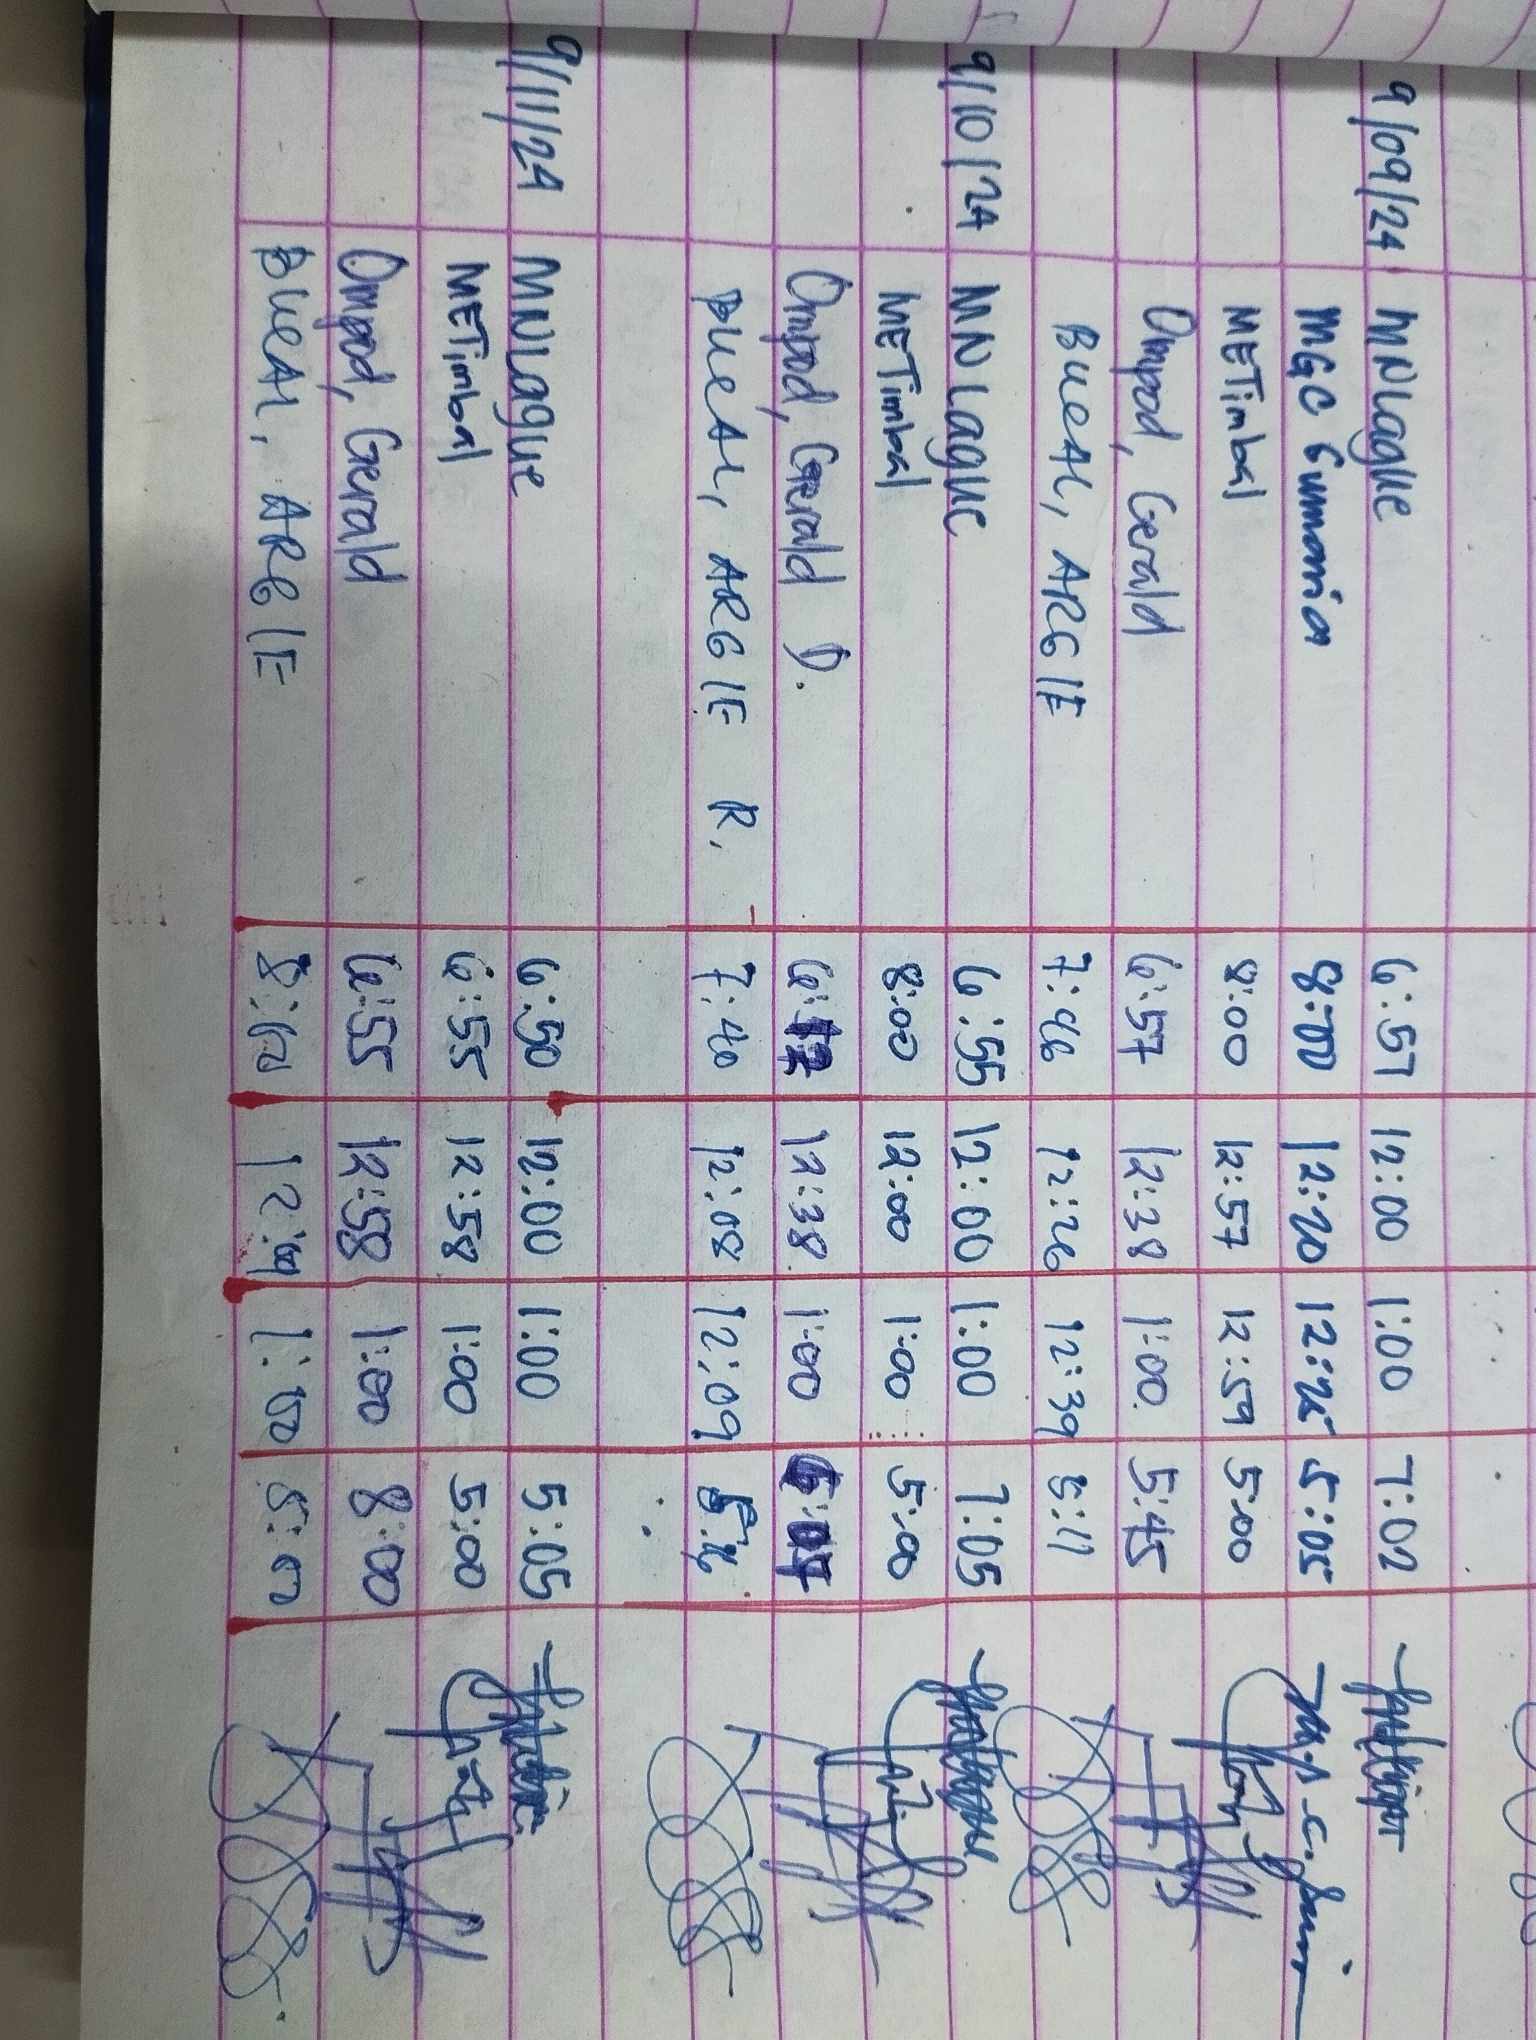 9/09/24 MNLague 6:57 12:00 1:00 7:02
MGC Gumania 8:00 12:20 12:25 5:05
METimbal 8:00 12:57 12:59 5:00
Ompod, Gerald 6:57 12:38 1:00 5:45
BUEAL, ARGIE 7:46 12:26 12:39 5:11
9/10/24 MNLague 6:55 12:00 1:00 7:05
METimbal 8:00 12:00 1:00 5:00
Ompod, Gerald D. 12:38 1:00
BUEAL, ARGIE R. 7:40 12:08 12:09
9/11/24 MNLague 6:50 12:00 1:00 5:05
METimbal 6:55 12:58 1:00 5:00
Ompod, Gerald 6:55 12:58 1:00 8:00
BUEAL, ARGIE 1:00